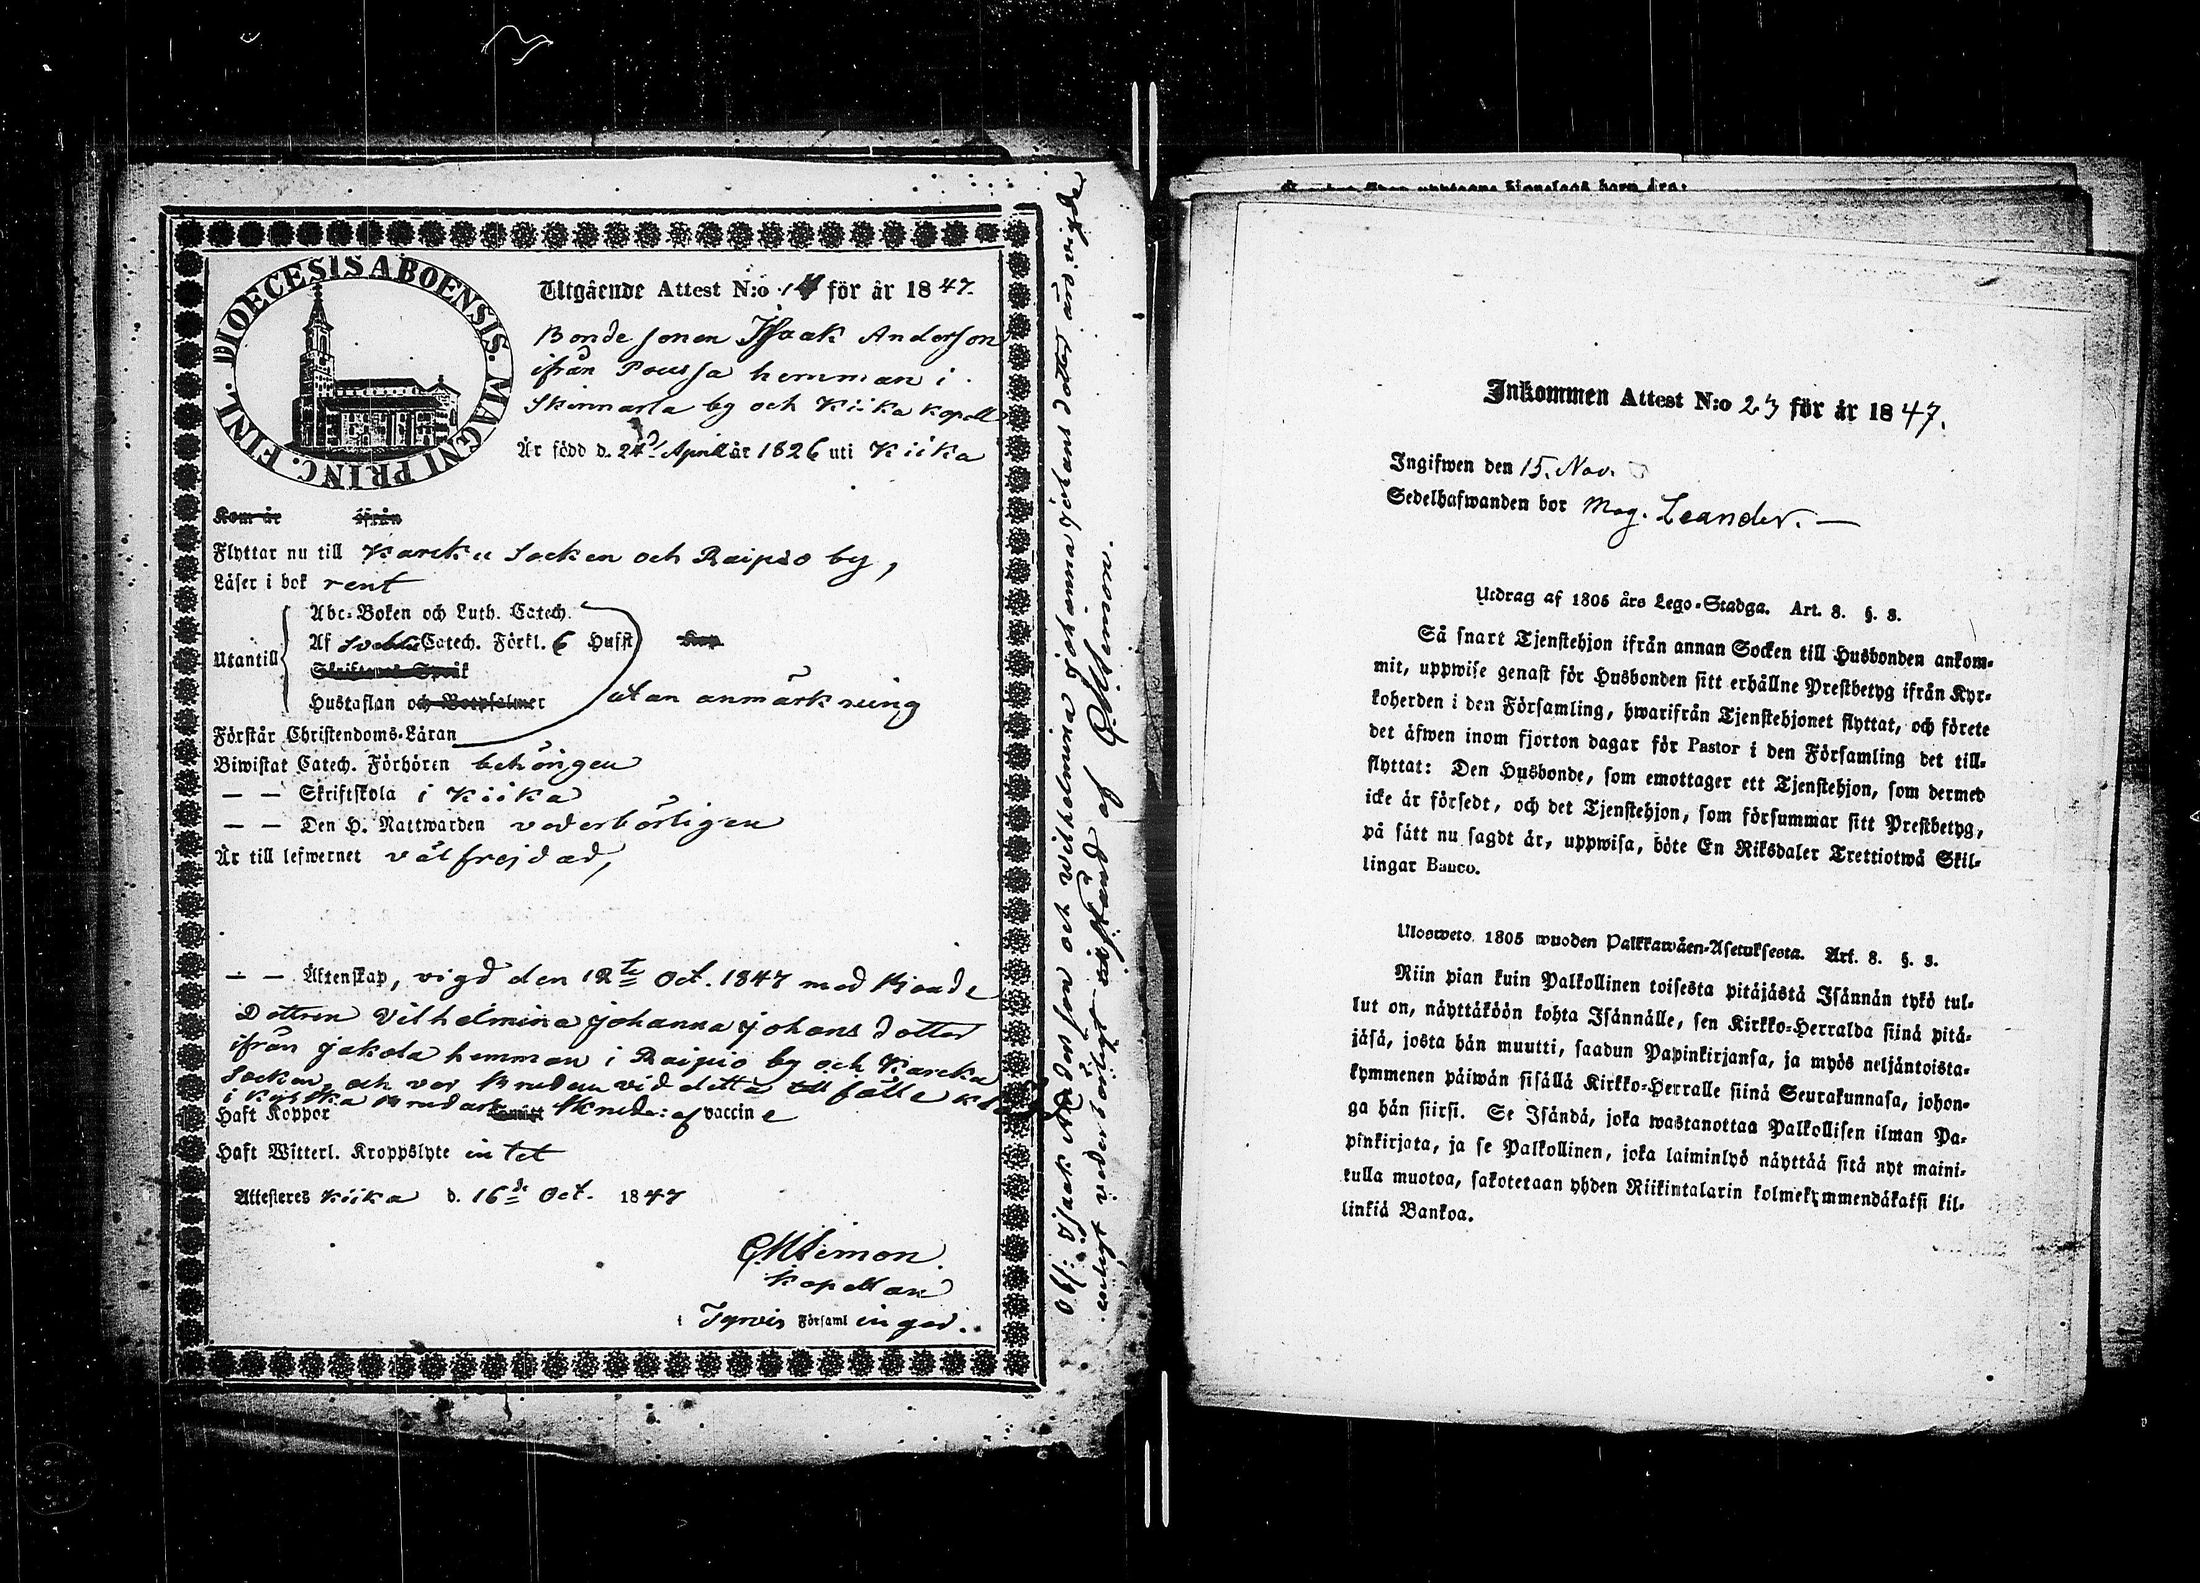 DIOECESIS ABOENSIS. MAGNI PRINC. FINL.
Utgående Attest N:o 14 för år 1847.
Bondesonen Isaak Anderson
ifrån Poussa hemman i
Skinnarla by och Kiika kapell
Är född d. 24 April år 1826 uti Kiika
Kom år ifrån
Flyttar nu till Karcku Socken och Raipio by,
Läser i bok rent
Abc-Boken och Luth. Catech.
Af Catech. Förkl. 6 Hufst
Utantill
Hustaflan och Botpsalmer
utan anmärkning
Förstår Christendoms-Läran
Biwistat Catech. Förhören behörigen
— — Skriftskola i Kiika
— — Den H. Nattwarden vederbörligen
Är till lefwernet välfrejdad,
— — Äktenskap, vigd den 12te Oct. 1847 med Bonde
Dottren Vilhelmina Johanna Johansdotter
ifrån Jakola hemman i Raipio by och Karcku
Socken, och var Bruden vid detta tillfälle klädd
i Kyrka Brudskrud
Haft Koppor af vaccine
Haft Witterl. Kroppslyte intet
Attesteras Kiika d. 16de Oct. 1847
Simon
Kapellan
i Tyrvis Församlingod.
Obs: Isaak Andersson och Wilhelmina Johanna Johansdotter äro vigde
enligt vederbörligt af Simon.
Inkommen Attest N:o 23 för år 1847.
Ingifwen den 15. Nov.
Sedelhafwanden bor Mag. Leander. —
Utdrag af 1805 års Lego-Stadga. Art. 8. §. 3.
Så snart Tjenstehjon ifrån annan Socken till Husbonden ankom-
mit, uppwise genast för Husbonden sitt erhållne Prestbetyg ifrån Kyr-
koherden i den Församling, hwarifrån Tjenstehjonet flyttat, och förete
det äfwen inom fjorton dagar för Pastor i den Församling det till-
flyttat: Den Husbonde, som emottager ett Tjenstehjon, som dermed
icke är försedt, och det Tjenstehjon, som försummar sitt Prestbetyg,
på sätt nu sagdt är, uppwisa, böte En Riksdaler Trettiotwå Skil-
lingar Banco.
Ulosweto 1805 wuoden Palkkawäen-Asetuksesta. Art. 8. §. 3.
Niin pian kuin Palkollinen toisesta pitäjästä Isännän tykö tul-
lut on, näyttäköön kohta Isännälle, sen Kirkko-Herralda siinä pitä-
jäsä, josta hän muutti, saadun Papinkirjansa, ja myös neljäntoista-
kymmenen päiwän sisällä Kirkko-Herralle siinä Seurakunnasa, johon-
ga hän siirsi. Se Isändä, joka wastanottaa Palkollisen ilman Pa-
pinkirjata, ja se Palkollinen, joka laiminlyö näyttää sitä nyt maini-
tulla muotoa, sakotetaan yhden Riikintalarin kolmekymmendäkaksi kil-
linkiä Bankoa.